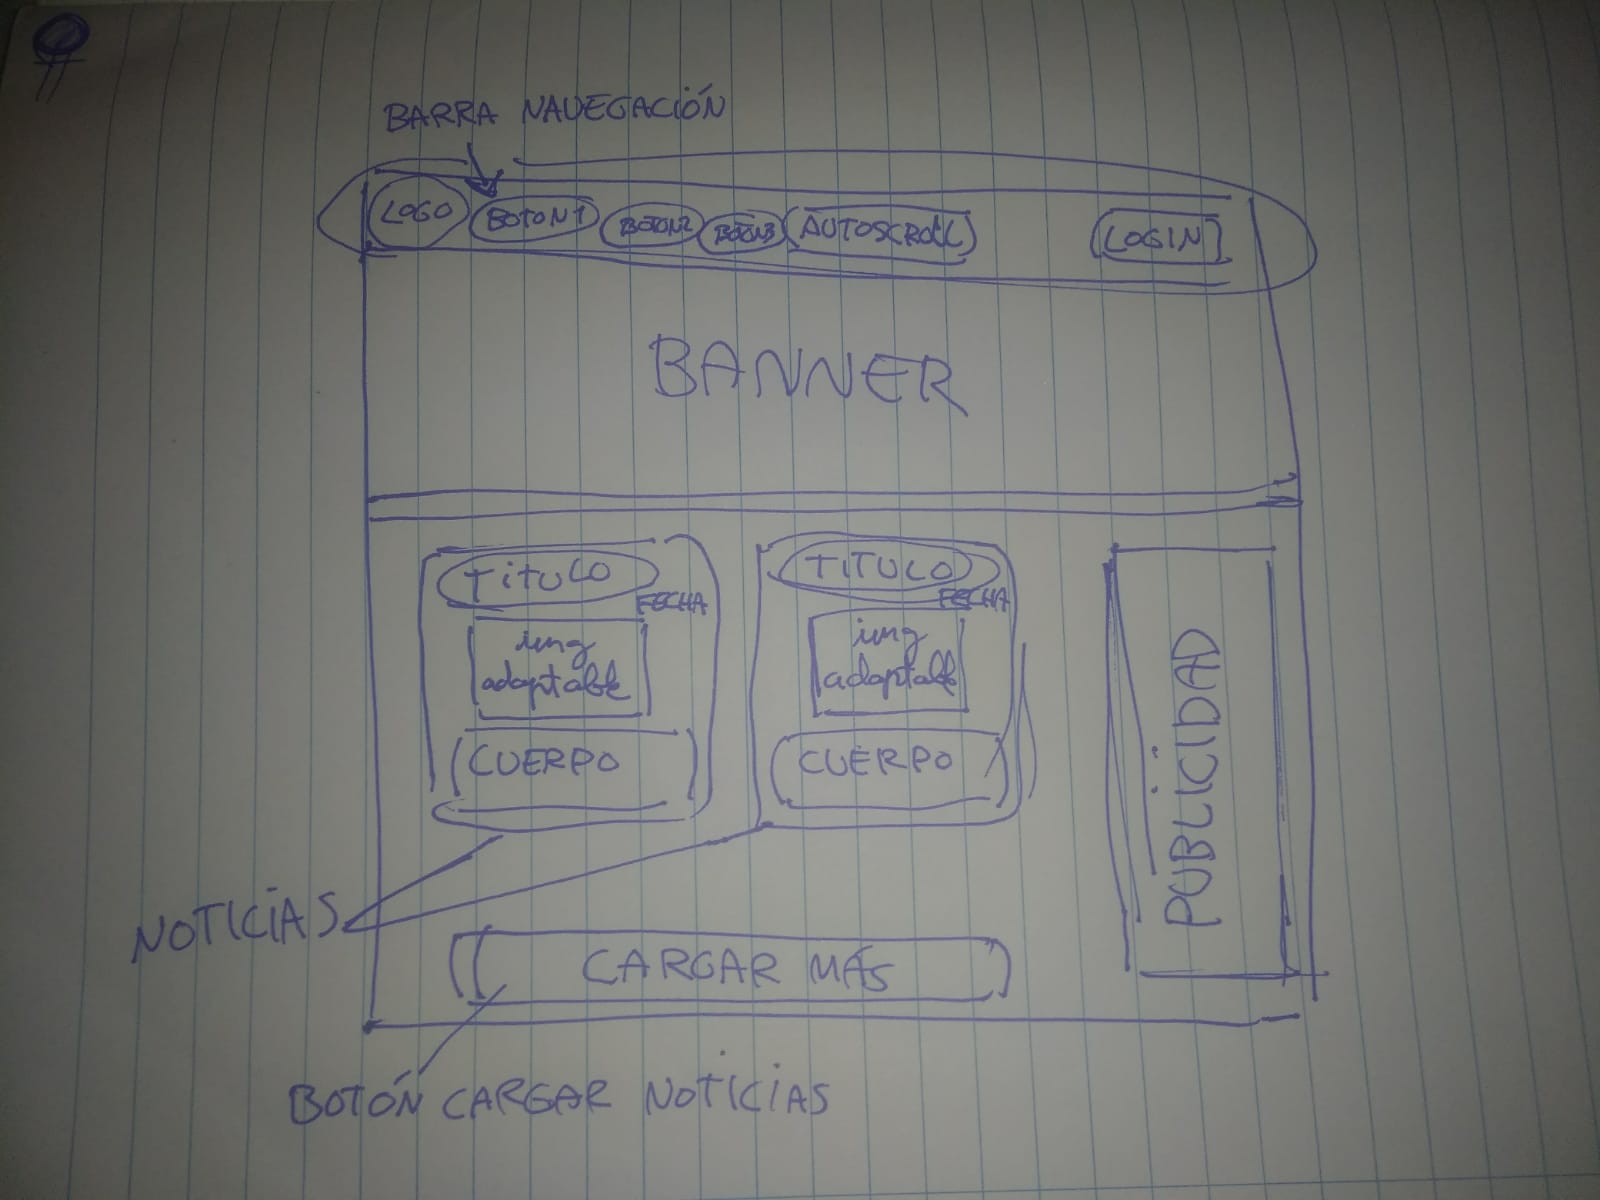 BARRA NAVEGACIÓN
LOGO BOTON1 BOTON2 BOTON3 AUTOSCROLL LOGIN
BANNER
TiTULO
FECHA
img
adaptable
CUERPO
TiTULO
FECHA
img
adaptable
CUERPO
PUBLiCiDAD
NOTICiAS
CARGAR MÁS
BOTÓN CARGAR NOTICiAS